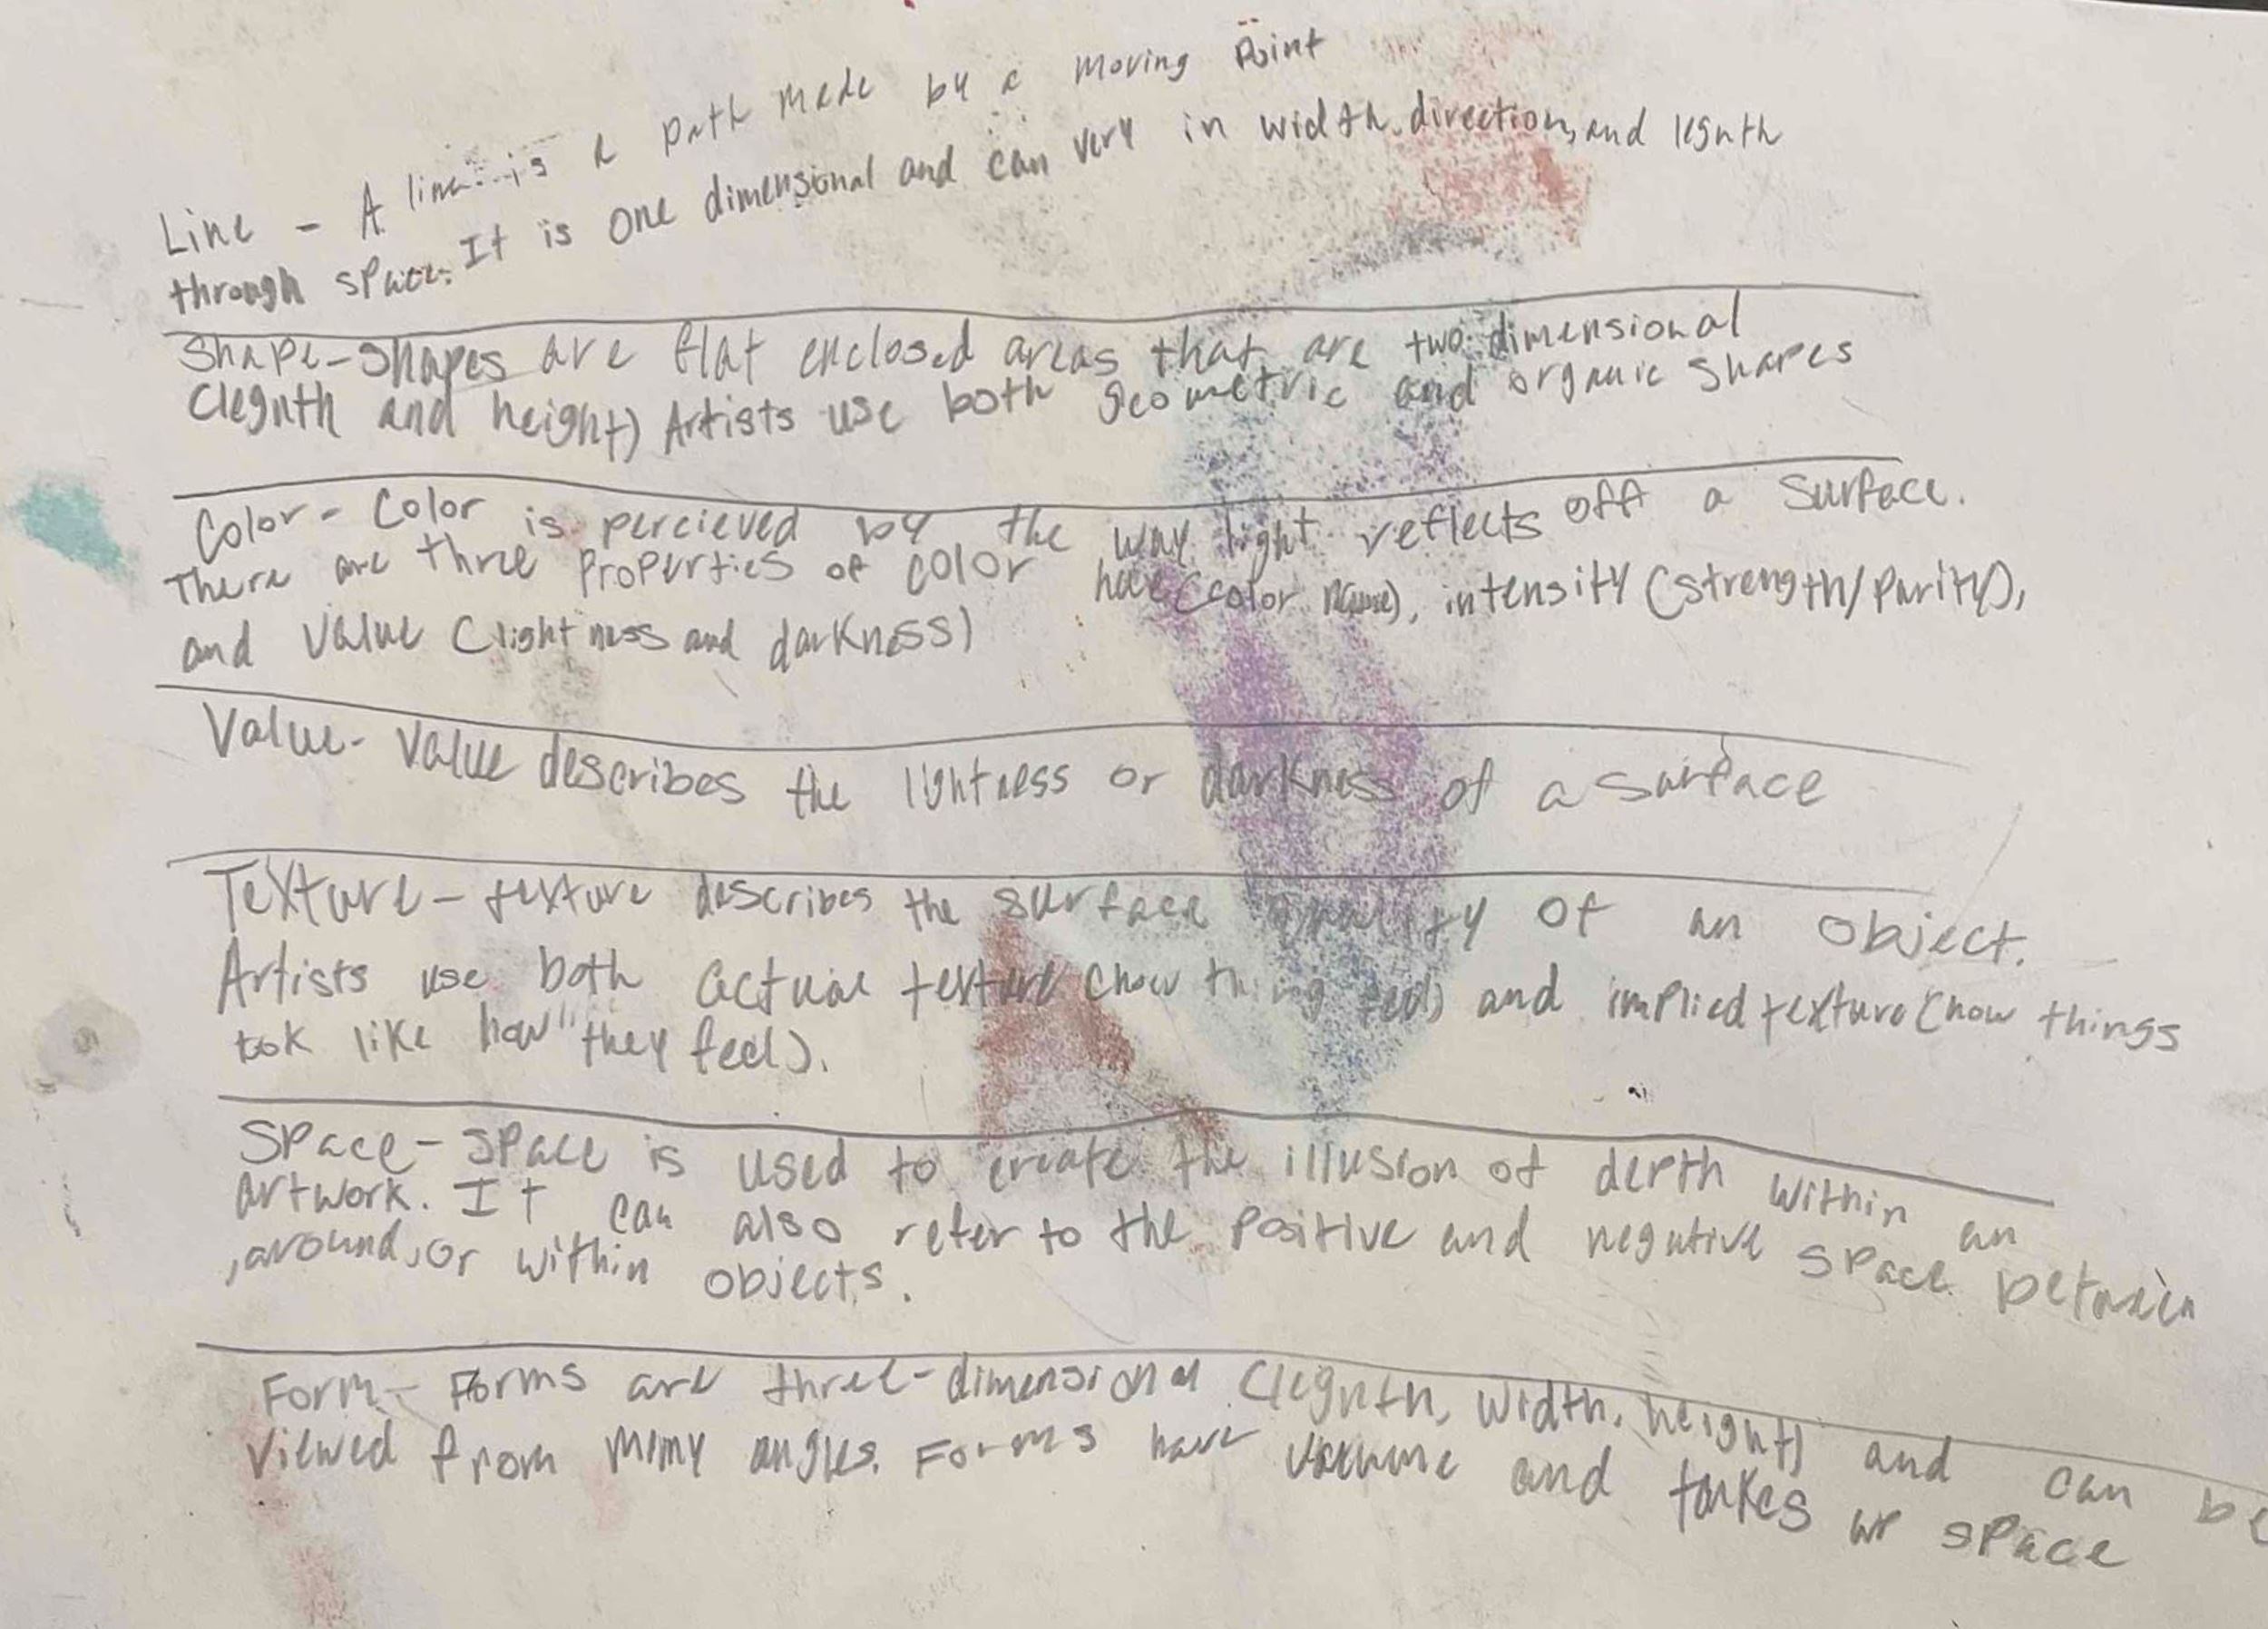 Line - A line is a path made by a moving Point
through space. It is one dimensional and can very in width, direction, and legnth
Shape - shapes are flat enclosed areas that are two dimensional
(legnth and height) Artists use both geometric and organic shapes
Color - Color is percieved by the way light reflects off a surface.
There are three Properties of color (color name), intensity (strength/purity),
and value (lightness and darkness)
Value - Value describes the lightness or darkness of a surface
Texture - texture describes the surface quality of an object.
Artists use both actual texture (how thing feel) and implied texture (how things
look like how they feel).
Space - space is used to create the illusion of depth within an
artwork. It can also refer to the positive and negative space between
, around, or within objects.
Form - Forms are three-dimensional (legnth, width, height) and can be
viewed from many angles. Forms have volume and takes up space